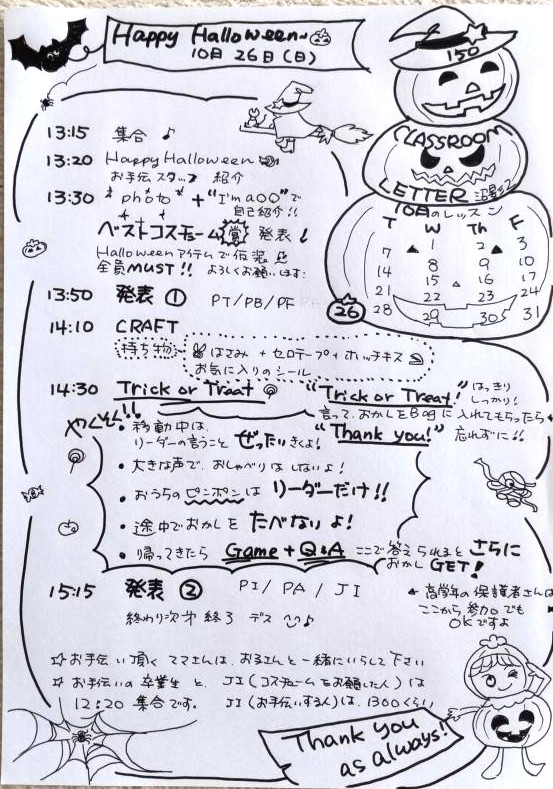 Happy Halloween
10月 26日(日)
150
CLASSROOM
LETTER
10月のレッスン
T W Th F
1 2 3
7 8 9 10
14 15 16 17
21 22 23 24
28 29 30 31
26
13:15 集合 ♪
13:20 Happy Halloween
お手伝スタッフ 紹介
13:30 photo + "I'm a○○"で
自己紹介!!
ベストコスチューム賞 発表
Halloweenアイテムで仮装
全員MUST!! よろしくお願いします!
13:50 発表 ① PT/PB/PF
14:10 CRAFT
持ち物 はさみ + セロテープ + ホッチキス
お気に入りのシール
14:30 Trick or Treat
"Trick or Treat!" はっきり しっかり!
言って、おかしをBagに入れてもらったら
"Thank you!" 忘れずに!!
やくそく!!
• 移動中は、
リーダーの言うこと ぜったいきくよ!
• 大きな声で、おしゃべりはしないよ!
• おうちのピンポンは リーダーだけ!!
• 途中でおかしを たべないよ!
• 帰ってきたら Game + Q&A ここで答えられると さらに
おかし GET!
15:15 発表 ② PI / PA / JI
高学年の保護者さんは
ここから参加でも
OKですよ
終わり次第終了 デス ♪
☆ お手伝い頂くママさんは、お子さんと一緒にいらして下さい
☆ お手伝いの卒業生と、JI (コスチュームをお願いした人)は
12:20 集合です。 JI (お手伝いする人)は、1300くらい
Thank you
as always!